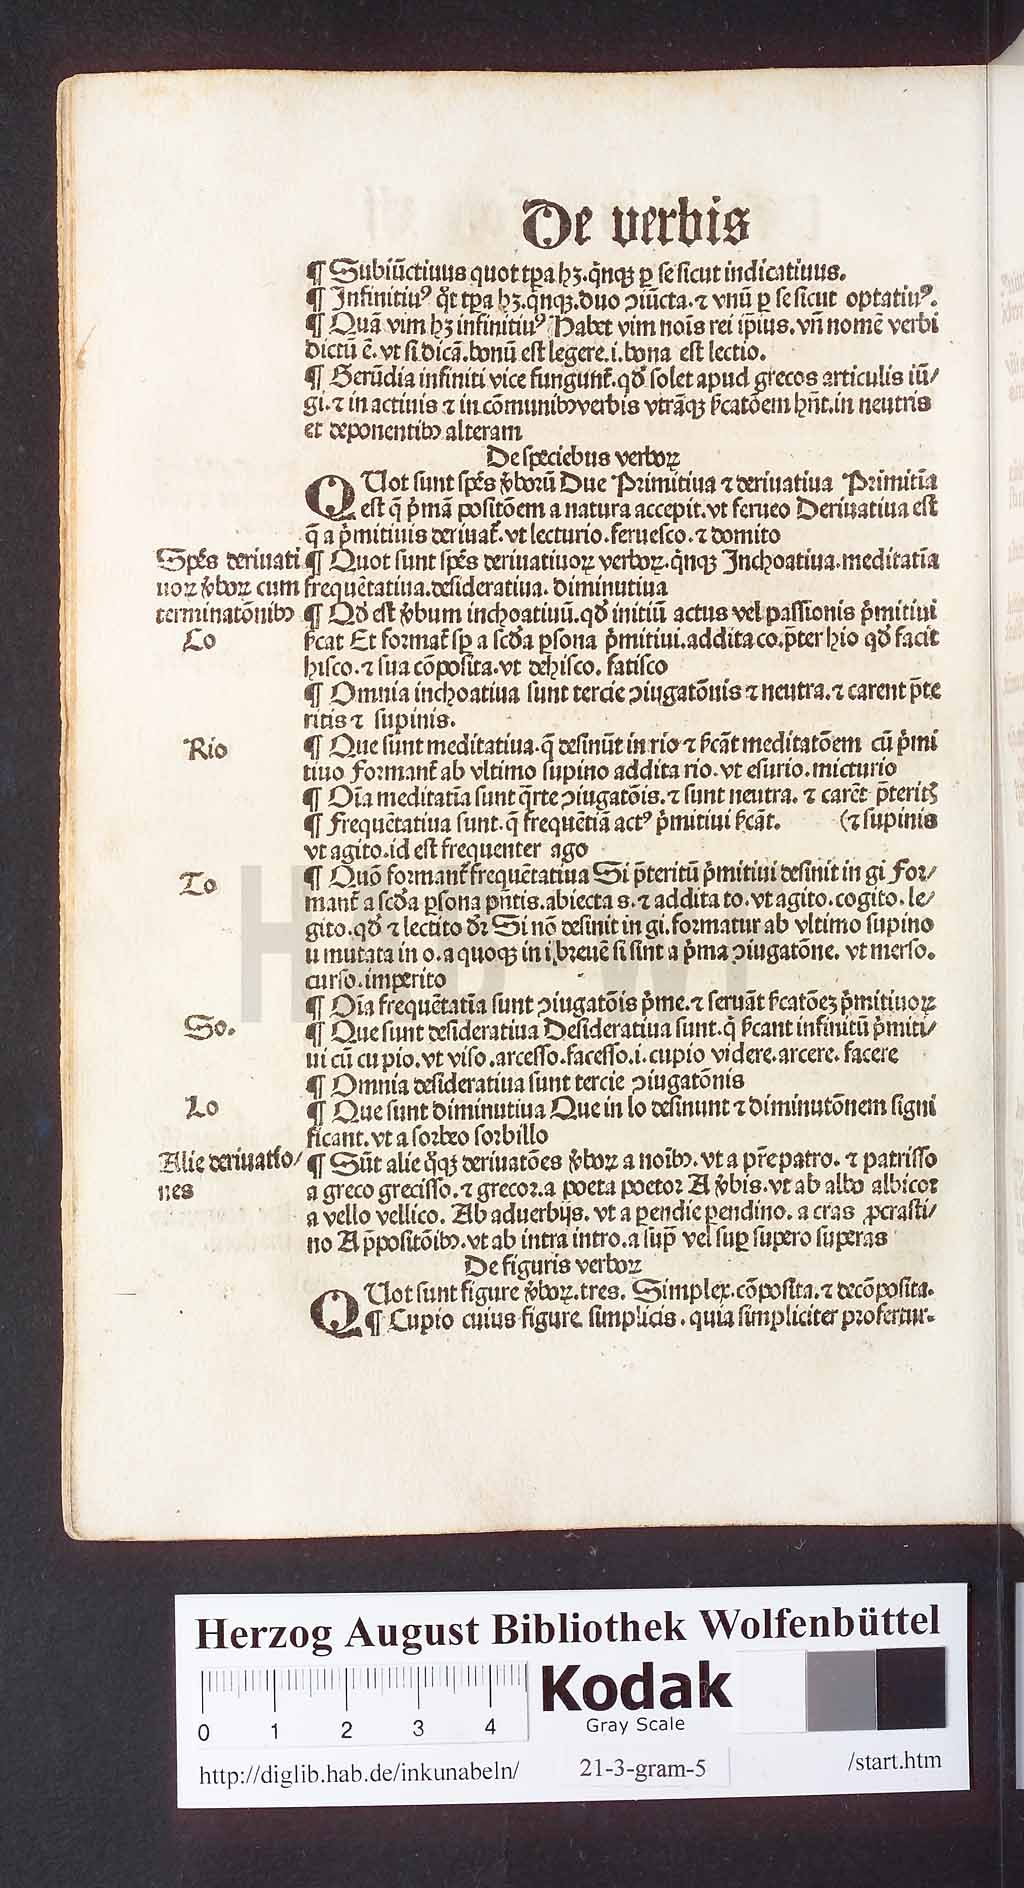 De verbis
¶ Subiūctiuus quot tꝑa hꝫ.q̇nqꝫ ꝑ se sicut indicatiuus.
¶ Infinitiuꝰ q̊t tꝑa hꝫ.q̇nqꝫ.duo ↄiūcta.⁊ vnū ꝑ se sicut optatiuꝰ.
¶ Quā vim hꝫ infinitiuꝰ Habet vim nois̄ rei ip̄ius.vn̄ nomē verbi
dictū ē.vt si dicā.bonū est legere.i.bona est lectio.
¶ Gerūdia infiniti vice fungunt̄.qd̓ solet apud grecos articulis iū/
gi.⁊ in actiuis ⁊ in cōmunibꝰ verbis vtrāqꝫ sc̓atōem hn̄t.in neutris
et deponentibꝰ alteram
De speciebus verboꝝ
QUot sunt spēs v̓borū Due Primitiua ⁊ deriuatiua Primitīa
est q̄ p̓mā positōem a natura accepit.vt ferueo Deriuatiua est
q̄ a p̓mitiuis deriuat̄.vt lecturio.feruesco.⁊ domito
Spēs deriuati
uoꝝ v̓boꝝ cum
terminatōnibꝰ
¶ Quot sunt spēs deriuatiuoꝝ verboꝝ.q̇nqꝫ Inchoatiua.meditatīa
frequētatiua.desideratiua.diminutiua
¶ Qd̓ est v̓bum inchoatiuū.qd̓ initiū actus vel passionis p̓mitiui
Co
sc̓at Et format̄ sꝑ a scd̓a ꝑsona p̓mitiui.addita co.p̄ter hio qd̓ facit
hisco.⁊ sua cōposita.vt dehisco.fatisco
¶ Omnia inchoatiua sunt tercie ↄiugatōnis ⁊ neutra.⁊ carent p̄te
ritis ⁊ supinis.
Rio
¶ Que sunt meditatiua.q̄ desinūt in rio ⁊ sc̓āt meditatōem cū p̓mi
tiuo Formant̄ ab vltimo supino addita rio.vt esurio.micturio
¶ Oīa meditatīa sunt q̄rte ↄiugatōis.⁊ sunt neutra.⁊ carēt p̄teritꝭ
¶ Frequētatiua sunt.q̄ frequētiā actꝰ p̓mitiui sc̓āt. (⁊ supinis
vt agito.id est frequenter ago
To
¶ Quō formant̄ frequētatiua Si p̄teritū p̓mitiui desinit in gi For/
mant̄ a scd̓a ꝑsona pn̄tis.abiecta s.⁊ addita to.vt agito.cogito.le/
gito.qd̓ ⁊ lectito dꝛ̄ Si nō desinit in gi.formatur ab vltimo supino
u mutata in o.a quoqꝫ in i breuē si sint a p̓ma ↄiugatōne. vt merso.
curso.imperito
¶ Oīa frequētatīa sunt ↄiugatōis p̓me.⁊ seruāt sc̓atōeꝫ p̓mitiuoꝝ
So.
¶ Que sunt desideratiua Desideratiua sunt.q̄ sc̓ant infinitū p̓miti/
ui cū cupio.vt viso.arcesso.facesso.i.cupio videre.arcere. facere
¶ Omnia desideratiua sunt tercie ↄiugatōnis
Lo
¶ Que sunt diminutiua Que in lo desinunt ⁊ diminutōnem signi
ficant.vt a sorbeo sorbillo
Alie deriuatio/
nes
¶ Sūt alie q̊qꝫ deriuatōes v̓boꝝ a noībꝰ.vt a pr̄e patro. ⁊ patrisso
a greco grecisso.⁊ grecor.a poeta poetor A v̓bis.vt ab albo albicor
a vello vellico. Ab aduerbijs. vt a pendie pendino. a cras ꝓcrasti/
no A p̄positōibꝰ.vt ab intra intro.a sup̄ vel suꝑ supero superas
De figuris verboꝝ
QUot sunt figure v̓boꝝ.tres. Simplex.cōposita.⁊ decōposita.
¶ Cupio cuius figure. simplicis. quia simpliciter profertur.
Herzog August Bibliothek Wolfenbüttel
Kodak
Gray Scale
0 1 2 3 4
http://diglib.hab.de/inkunabeln/ 21-3-gram-5 /start.htm